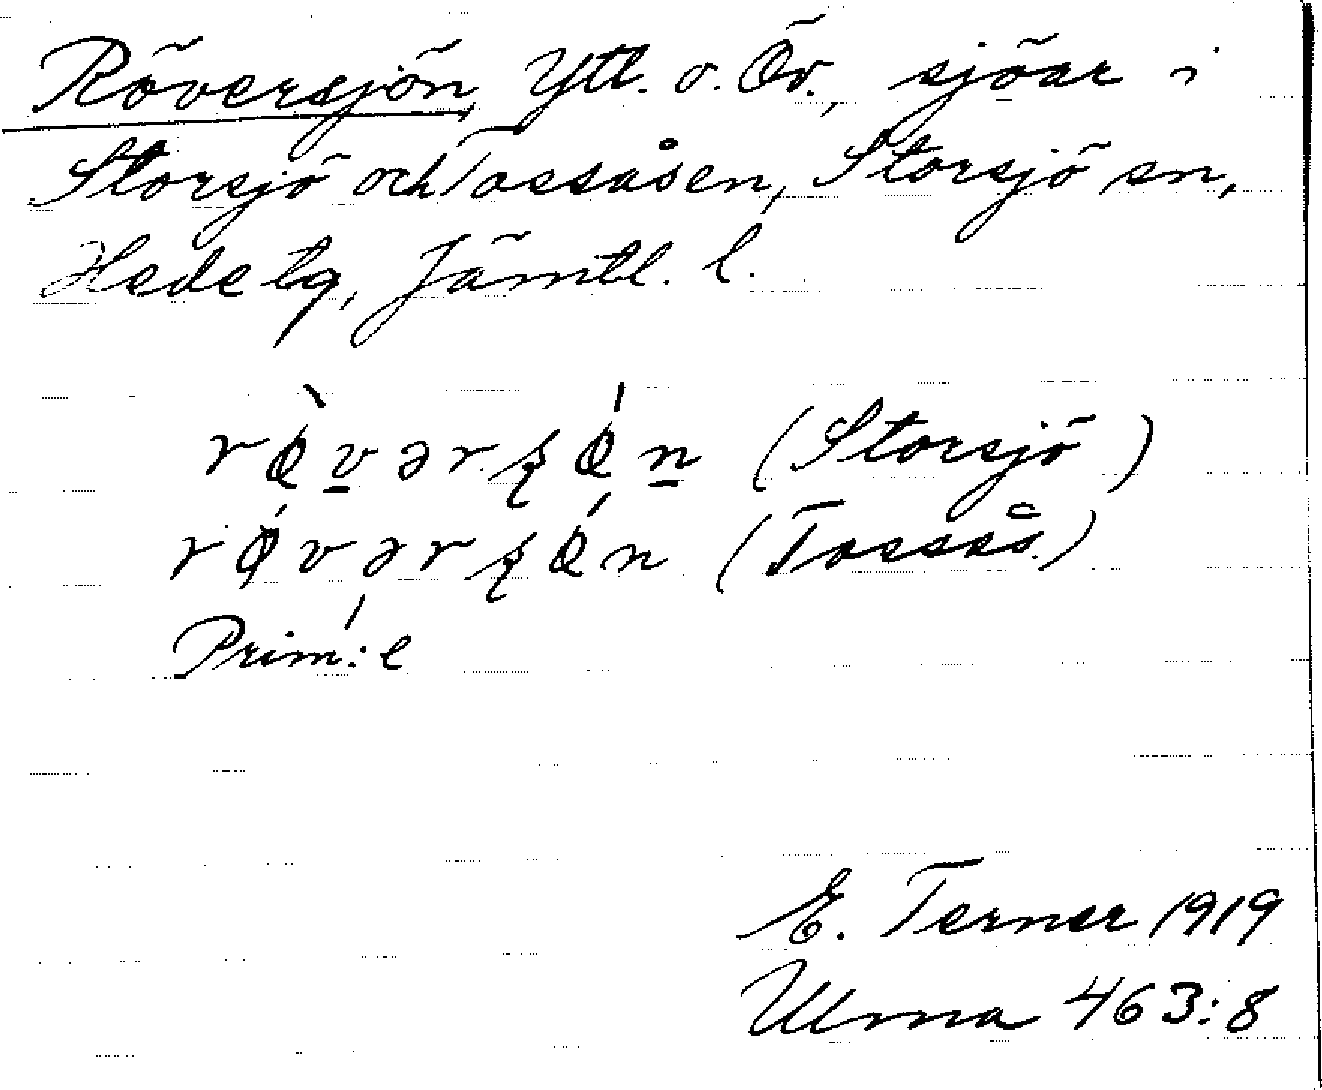 Röversjön, Ytt. o. Öv., sjöar i
Storsjö och Tossåsen, Storsjö sn,
Hede tg, Jämtl. l.
(Storsjö)
(Tossås.)
Prim: e
E. Terner 1919
Ulma 463:8